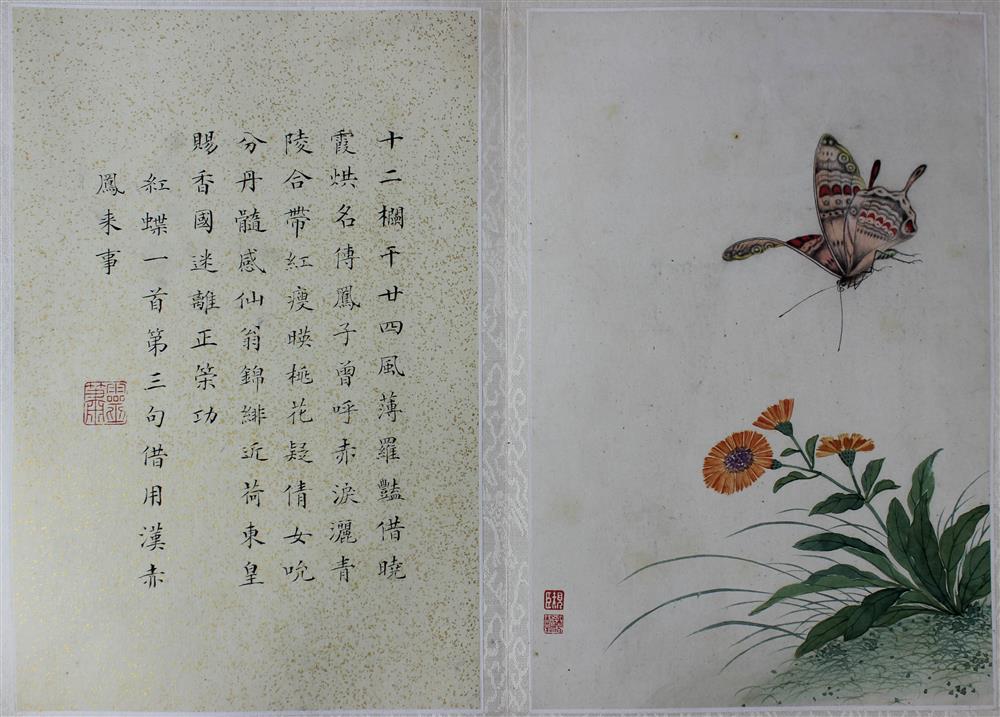 十二欄干廿四風薄羅豔借曉
霞烘名傳鳳子曾呼赤淚灑青
陵合帶紅瘦暎桃花疑倩女吮
分丹髓感仙翁錦緋近荷東皇
賜香國迷離正策功
紅蝶一首第三句借用漢赤
鳳来事